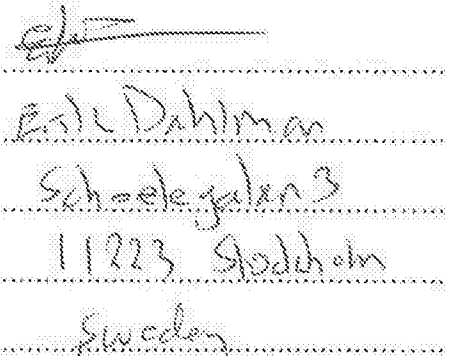 Erik Dahlman
Scheelegatan 3
11223 Stockholm
Sweden